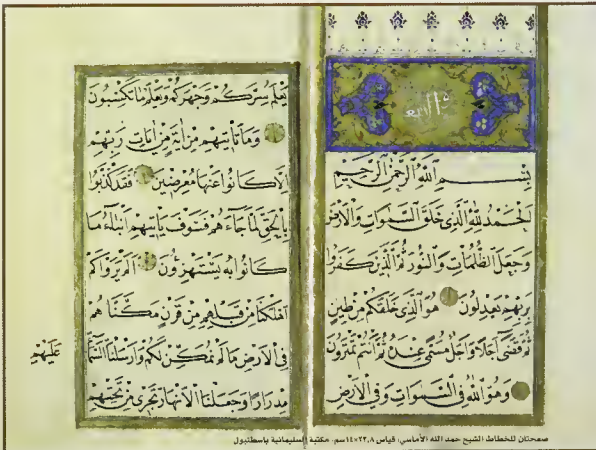 بسم الله الرحمن الرحيم
الحمد لله الذي خلق السموات والارض
وجعل الظلمات والنور ثم الذين كفروا
بربهم يعدلون هو الذي خلقكم من طين
ثم قضى اجلا واجل مسمى عنده ثم انتم تمترون
وهو الله في السموات وفي الارض
يعلم سركم وجهركم ويعلم ما تكسبون
وما تاتيهم من اية من ايات ربهم
الا كانوا عنها معرضين فقد كذبوا
بالحق لما جاءهم فسوف ياتيهم انباء ما
كانوا به يستهزؤن الم يروا كم
اهلكنا من قبلهم من قرن مكناهم
في الارض ما لم نمكن لكم وارسلنا السماء
عليهم
مدرارا وجعلنا الانهار تجري من تحتهم
صفحتان للخطاط الشيخ حمد الله الأماسي، قياس ٢٢,٨×١٤سم. مكتبة السليمانية بإسطنبول